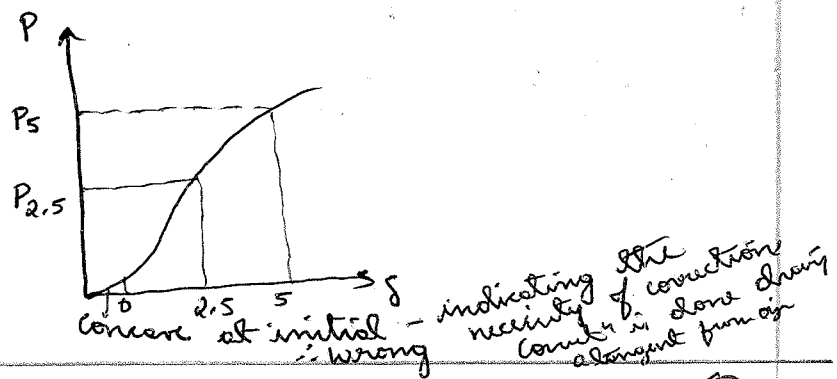 P
P5
P2.5
0 2.5 5 δ
concave at initial - indicating the
necessity of correction
∴ wrong
Corrctn is done drawing
a tangent from